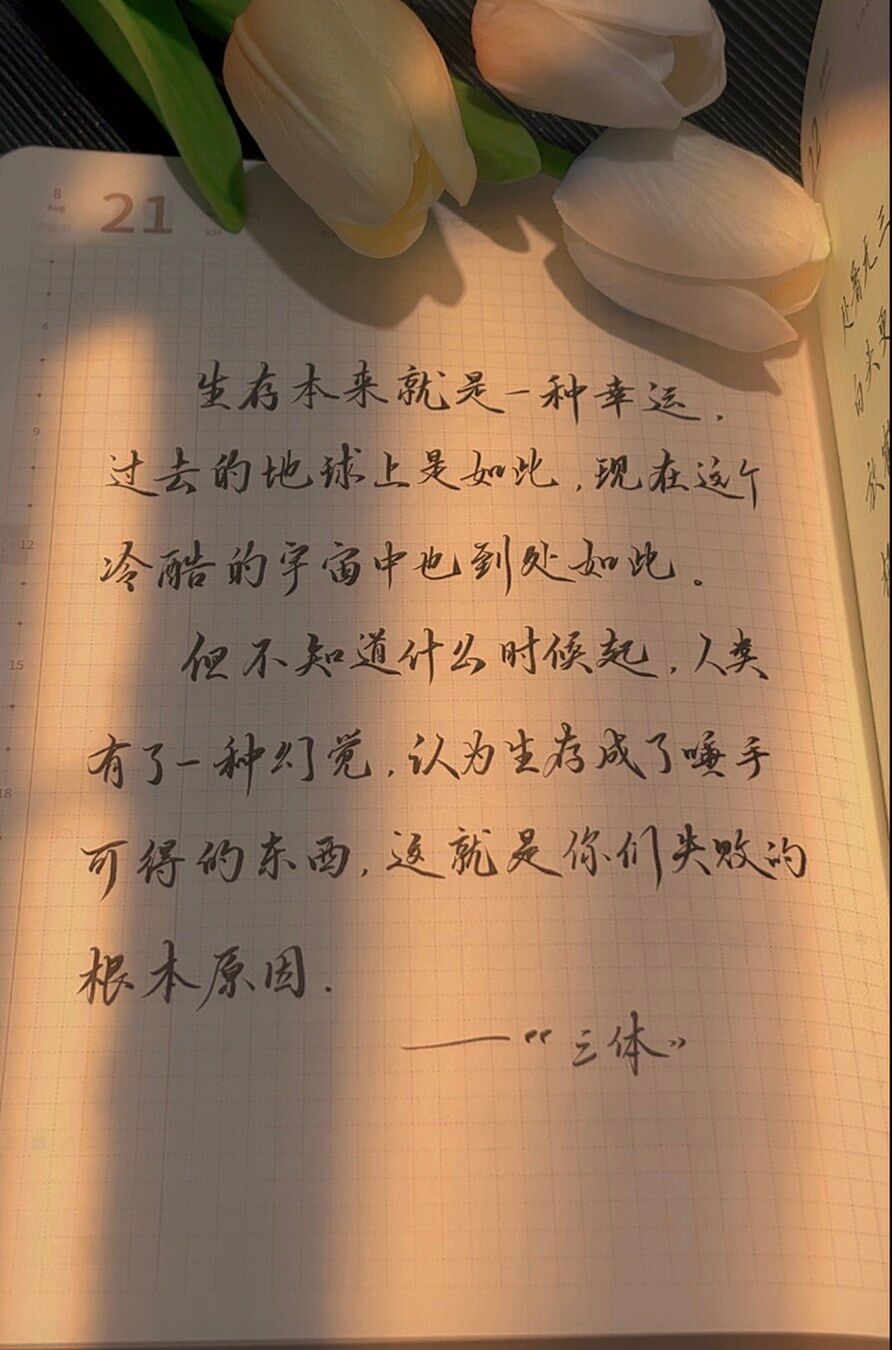 8
Aug
21
234
6
9
12
15
18
生存本来就是一种幸运，
过去的地球上是如此，现在这个
冷酷的宇宙中也到处如此。
但不知道什么时候起，人类
有了一种幻觉，认为生存成了唾手
可得的东西，这就是你们失败的
根本原因.
——“三体”